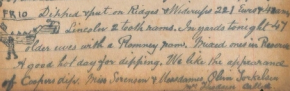 FR 10 Dipped & put on Ridges & Widowers 221 Ewes &
Lincoln 2 tooth rams. In yards tonight 47
older ewes with a Romney ram. Mixed ones in Reserve
A good hot day for dipping. We like the appearance
of Coopers dip. Miss Sorenson & Mesdames Olsen
Mrs called